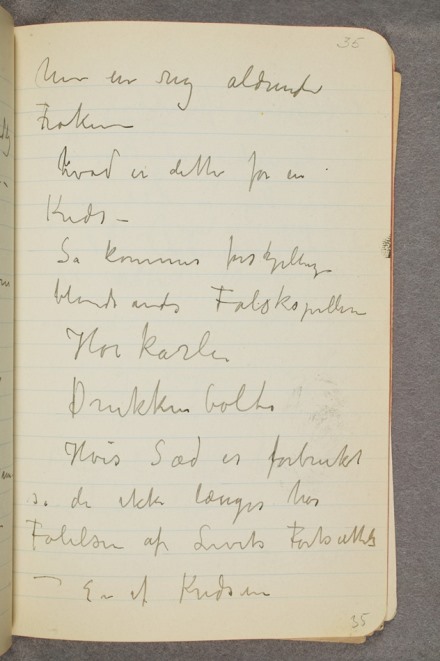 35
hun en syg aldrende
Frøken
Hvad er dette for en
Kreds –
Sa kommer forskjellige
blandt andr Falskspilleren
Horkarlen
Drukkenbolten
Hvis Sæd er forbruket
så de ikke længer har
Følelsen af Livets Fortsættelse
– En af Kredsen
35